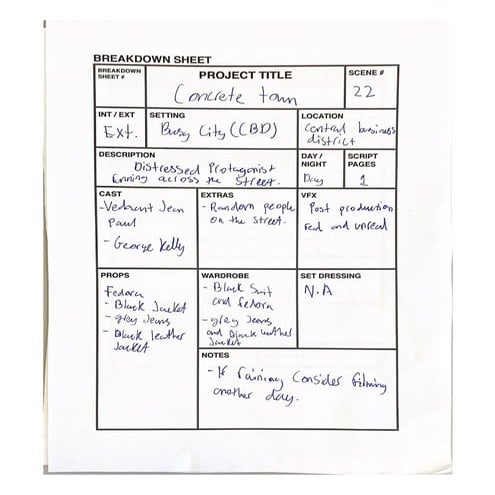 BREAKDOWN SHEET
BREAKDOWN
SHEET #
PROJECT TITLE
Concrete town
SCENE #
22
INT / EXT
Ext.
SETTING
Busy City (CBD)
LOCATION
Central business
district
DESCRIPTION
Distressed Protagonist
across the Street.
DAY /
NIGHT
Day
SCRIPT
PAGES
1
CAST
- Vedaunt Jean
Paul
- George Kelly
EXTRAS
- Random people
on the street.
VFX
Post production
real and unreal
PROPS
Fedora
- Black Jacket
- grey Jeans
- Black leather
Jacket
WARDROBE
- Black Suit
and fedora
- grey Jeans
and black leather
Jacket
SET DRESSING
N.A
NOTES
- If raining Consider filming
another day.